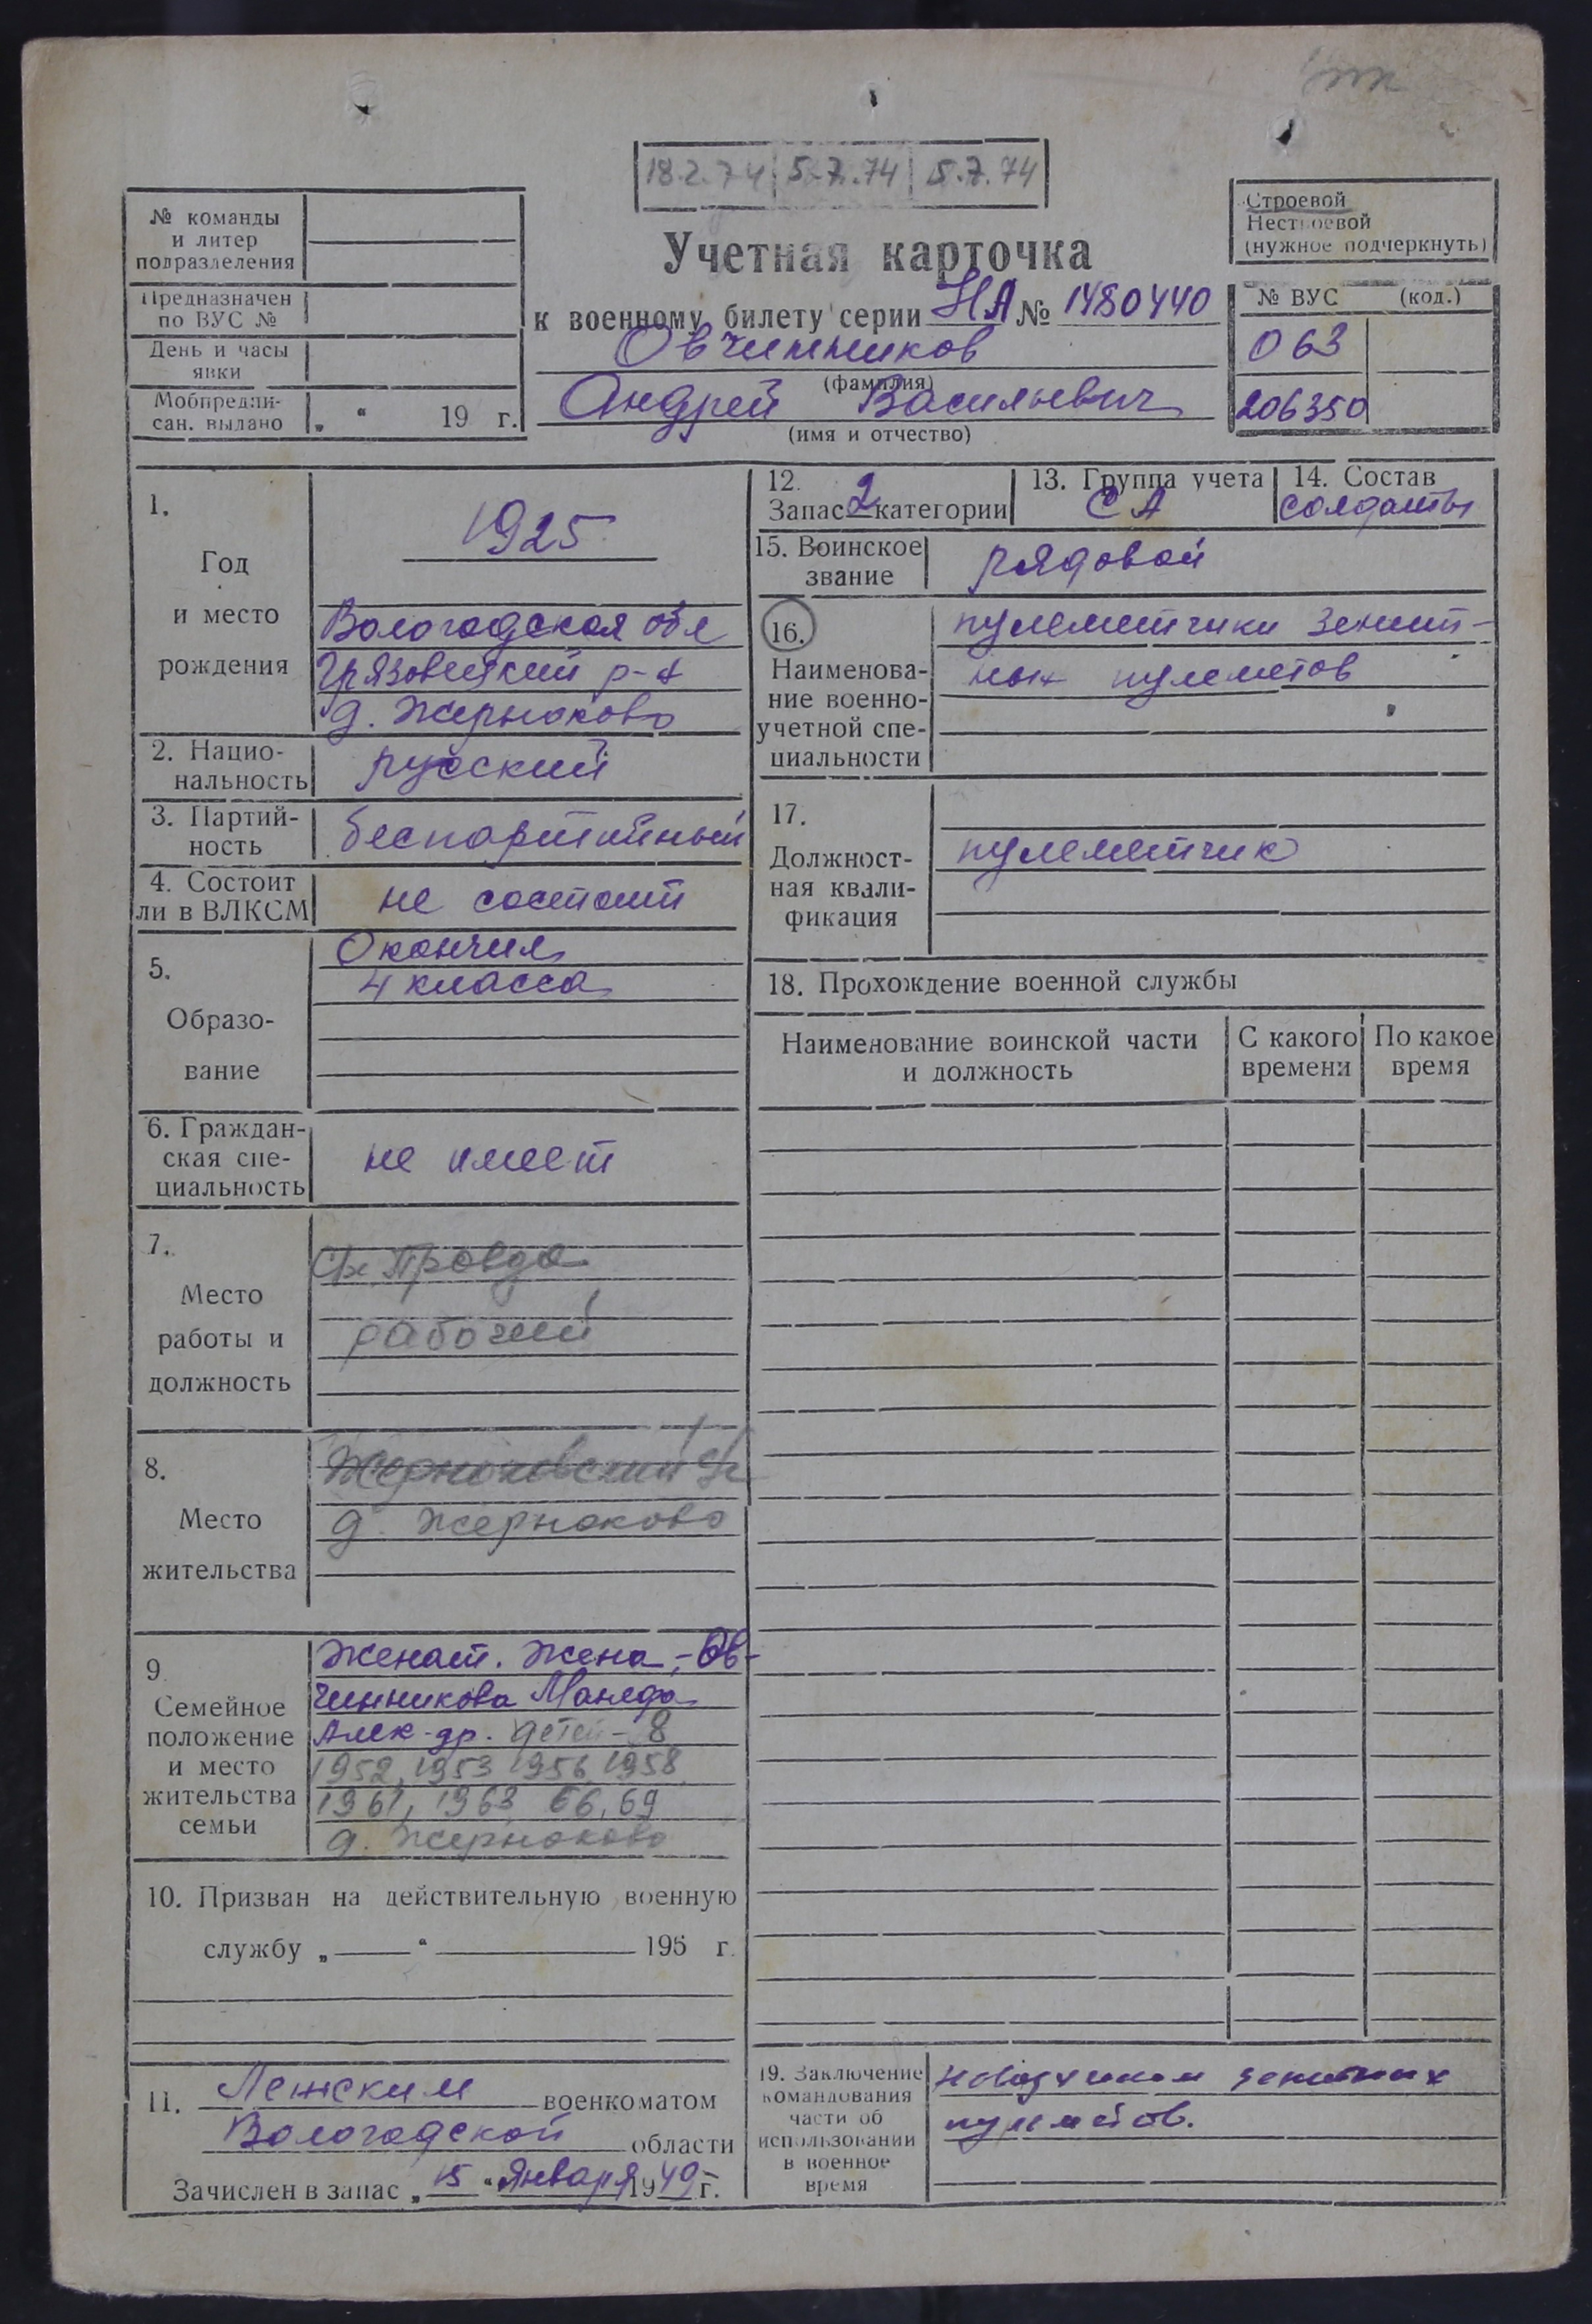 18.2.74 5.7.74 5.7.74
№ команды
и литер
подразделения
Предназначен
по ВУС №
День и часы
явки
Мобпредпи-
сан. выдано „ “ 19 г.
Учетная карточка
к военному билету серии НА № 1480440
Овчинников
(фамилия)
Андрей Васильевич
(имя и отчество)
Строевой
Нестроевой
(нужное подчеркнуть)
№ ВУС (код.)
063
206350
1.
Год
и место
рождения
1925
Вологодская обл
Грязовецкий р-н
д. Жерноково
2. Нацио-
нальность
русский
3. Партий-
ность
беспартийный
4. Состоит
ли в ВЛКСМ
не состоит
5.
Образо-
вание
Окончил
4 класса
6. Граждан-
ская спе-
циальность
не имеет
7.
Место
работы и
должность
Правда
рабочий
8.
Место
жительства
Жерноковский
д. Жерноково
9.
Семейное
положение
и место
жительства
семьи
Женат. Жена - Ов-
чинникова Манефа
Алек-др. детей - 8
1952, 1953 1956 1958
1961, 1963 66, 69
д. Жерноково
10. Призван на действительную военную
службу „ “ 195 г.
11. военкоматом
Вологодской области
Зачислен в запас „15“ Января 1949 г.
12.
Запас 2 категории
13. Группа учета
СА
14. Состав
солдаты
15. Воинское
звание
рядовой
16.
Наименова-
ние военно-
учетной спе-
циальности
пулеметчики зенит-
ных пулеметов
17.
Должност-
ная квали-
фикация
пулеметчик
18. Прохождение военной службы
Наименование воинской части
и должность
С какого
времени
По какое
время
19. Заключение
командования
части об
использовании
в военное
время
зенитных
пулеметов.